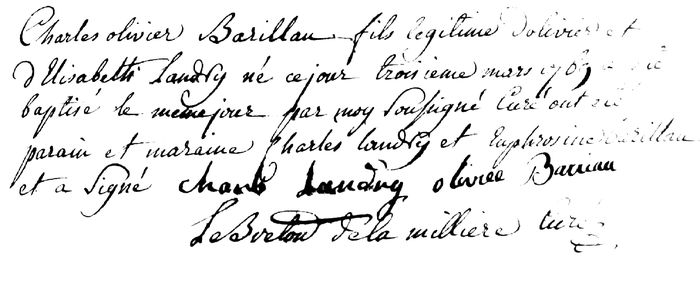 Charles olivier Barillau fils legitime d'olivier et
d'Elisabeth Landry né cejour troisieme mars
baptisé le mêmejour par moy Soussigné Curé ont été
parain et maraine Charles landry et Euphrosine Barillau
et a Signé charle Landry olivier Barriau
LeBreton dela milliere Curé